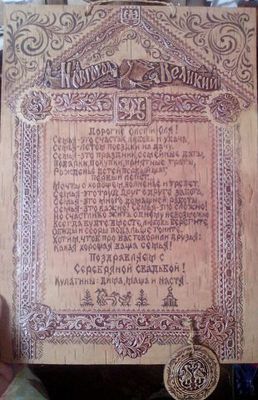 Новгород Великий
Дорогие Олег и Юля!
Семья-это счастье, любовь и удача,
Семья-это летом поездки на дачу.
Семья-это праздник, семейные даты,
Подарки, покупки, приятные траты,
Рожденье детей, первый шаг,
первый лепет,
Мечты о хорошем, волненье и трепет.
Семья-это труд, друг о друге забота,
Семья-это много домашней работы.
Семья-это важно! Семья-это сложно!
Но счастливо жить одному невозможно
Всегда будьте вместе, любовь берегите,
Обиды и ссоры подальше гоните,
Хотим, чтоб про вас говорили друзья:
Какая хорошая ваша семья!
Поздравляем с
Серебряной свадьбой!
Миша, Маша и Настя.